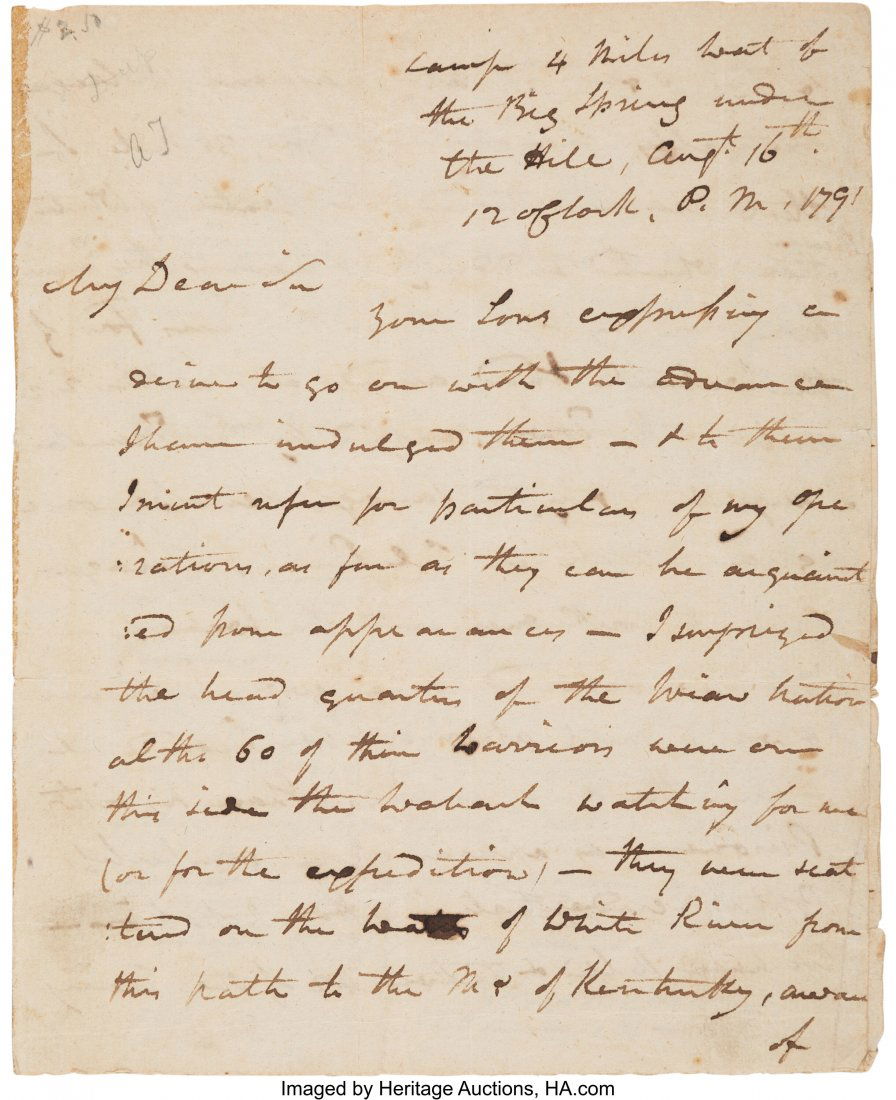 $2.50
AJ
Camp 4 Miles West of
the Big Spring under
the Hill, Augt. 16th.
12 oClock, P. M. 1791
My Dear Sir
Your Sons expressing a
desire to go on with the advance
I have indulged them — & to them
I must refer for particulars of my ope
:rations, as far as they can be acquaint
:ed from appearances — I surprized
the head quarters of the Wiaw Nation
altho 60 of their Warriors were on
this side the Wabash watching for me
(or for the expedition) — they were scat
:tered on the of White River from
this path to the Mo. of Kentucky, aware
of
Imaged by Heritage Auctions, HA.com